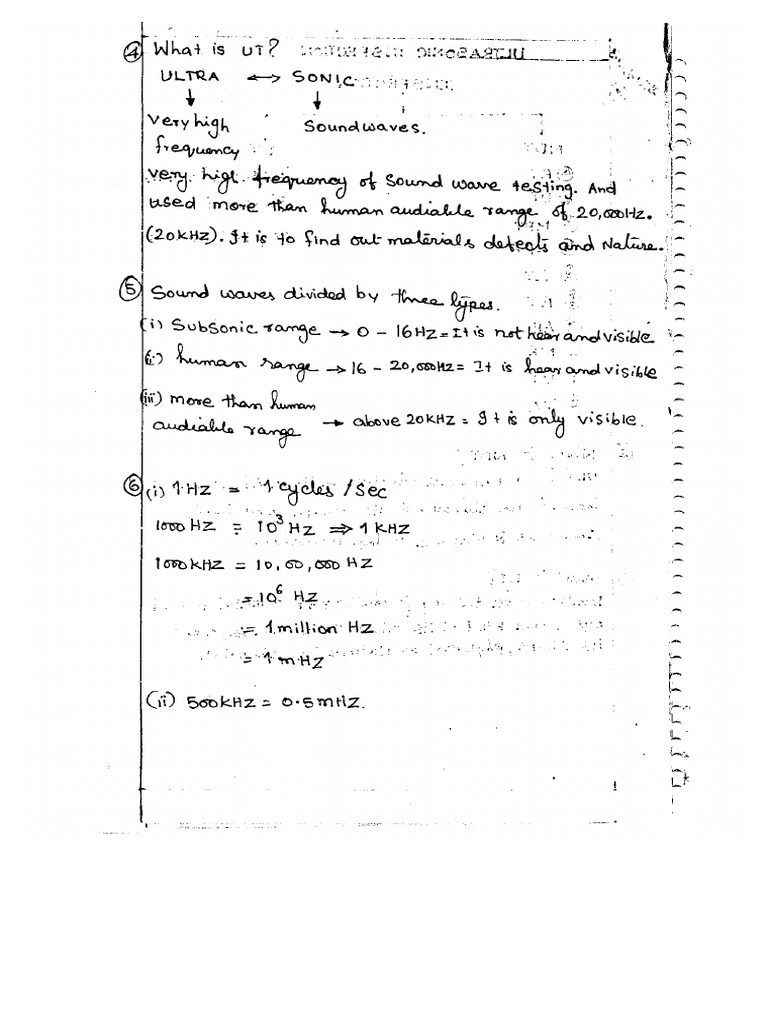 ④ What is UT?
ULTRA ↔ SONIC
↓ ↓
Very high Sound waves.
frequency
very high frequency of sound wave testing. And
used more than human audiable range of 20,000Hz.
(20KHz). It is to find out materials defects and Nature.
⑤ Sound waves divided by three types.
(i) Subsonic range → 0 - 16HZ = It is not hear and visible
(ii) human range → 16 - 20,000HZ = It is hear and visible
(iii) more than human
audiable range → above 20KHZ = It is only visible.
⑥ (i) 1HZ = 1 cycles / Sec
1000 HZ = 10³ HZ ⇒ 1 KHZ
1000KHZ = 10,00,000 HZ
= 10⁶ HZ
= 1 million HZ
= 1 mHZ
(ii) 500KHZ = 0.5mHZ.